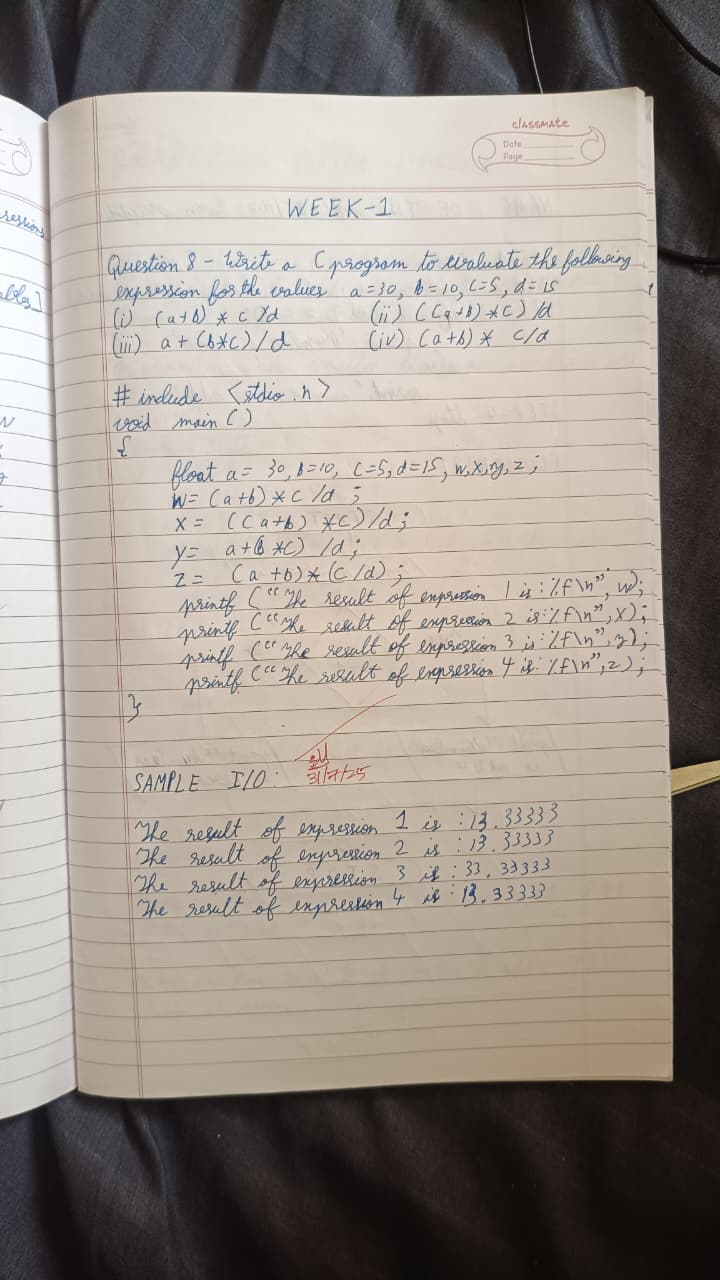 classmate
Date
Page
ressions
WEEK-1
Question 8 - Write a C program to evaluate the following
expression for the values a=30, b=10, c=5, d=15
(i) (a+b) * c /d (ii) ((a+b) *c) /d
(iii) a + (b*c) / d (iv) (a+b) * c/d
# include <stdio.h>
void main ()
{
float a= 30, b=10, c=5, d=15, w,x,y,z ;
w= (a+b) *c /d ;
x = ((a+b) *c) /d ;
y= a+(b *c) /d ;
z = (a +b)* (c /d) ;
printf (“The result of expression 1 is : %f\n”, w);
printf (“The result of expression 2 is: %f\n”, x) ;
printf (“The result of expression 3 is : %f\n”, y) ;
printf (“The result of expression 4 is: %f\n”, z) ;
}
31/7/25
SAMPLE I/O :
The result of expression 1 is : 13.33333
The result of expression 2 is : 13.33333
The result of expression 3 is : 33.33333
The result of expression 4 is : 13.33333